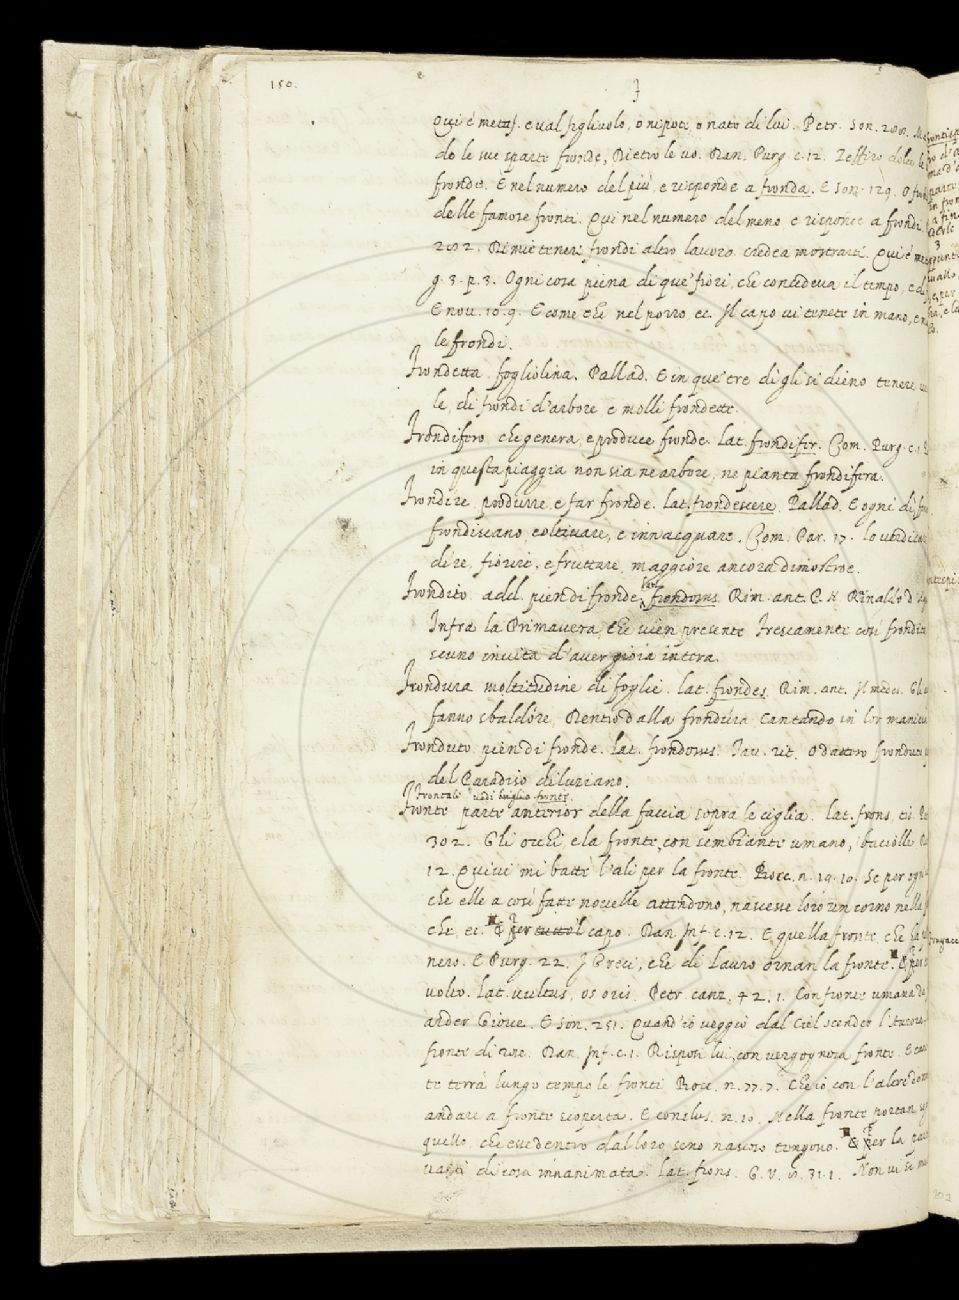 150.
F
Qui è metaf. e val figlivolo, o nipote, o nato di lui. Petr. Son. 200.
do le sue sparte fronde, Dietro le vo. Dan. Purg. c. 12. Zeffiro dolce le
fronde. E nel numero del più, e risponde a fronda. E son. 129. O
delle famose fronti. Qui nel numero del meno e risponde a frondi
202. Rimie tenere frondi altro lavoro credea mostrarti. Qui è me
g. 3. p. 3. Ogni cosa piena di que' fiori, che concedeva il tempo, e di
E nov. 10. 9. E come che nel porro, ec. Il capo vi tenete in mano, e
le frondi.
Frondetta. fogliolina. Pallad. E in que' tre dì gli si dieno tenere
le, di frondi d'arbore e molli frondette.
Frondifero che genera, e produce fronde. lat. frondifer. Com. Purg. c. 1
in questa piaggia non sia ne arbore, ne pianta frondifera.
Frondire produrre, e far fronde. lat. frondescere. Pallad. E ogni dì
frondiscano, coltivare, e innacquare. Com. Par. 17. lo
dire, fiorire, e fruttare, maggiore ancora dimostroe.
Frondito add. pien di fronde, lat. frondosus. Rim. ant. P. N. Rinaldo d'
Infra la Primavera, che vien presente Frescamente così frondit
scuno invita d'aver gioia intera.
Frondura moltitudine di foglie. lat. frondes. Rim. ant. Il medes. Gli
fanno sbaldore, Dentro dalla frondura Cantando in lor manier
Fronduto pien di fronde. lat. frondosus. Tav. rit. O dattero fronduto
del Paradiso diluziano.
Frontale vedi briglia fronte.
Fronte parte anterior della faccia sopra le ciglia. lat. frons, tis.
302. Gli occhi, e la fronte con sembiante umano,
12. Quivi mi battè l'ali per la fronte. Bocc. n. 19. 10. Se per ogni
che elle a così fatte novelle attendono, nascesse loro un corno nella
che, ec. E per tutto 'l capo. Dan. Inf. c. 12. E quella fronte, che ha
nero. E Purg. 22. I Greci, che di Lauro ornan la fronte. E per
volto. Lat. vultus, os oris. Petr. canz. 42. 1. Con fronte umana da
arder Giove. E Son. 251. Quand' io veggio dal Ciel scender l'Aurora
fronte di rose. Dan. Inf. c. 1. Risposi lui, con vergognosa fronte. E
te terrà lungo tempo le fronti. Bocc. n. 77. 7. Che io con l'altre
andare a fronte scoperta. E conclus. n. 10. Nella fronte portan
quello, che esse dentro dal loro seno nascoso tengono. E per la
vanti di cosa innanimata. lat. frons. G. V. 31. 1. Non vi si